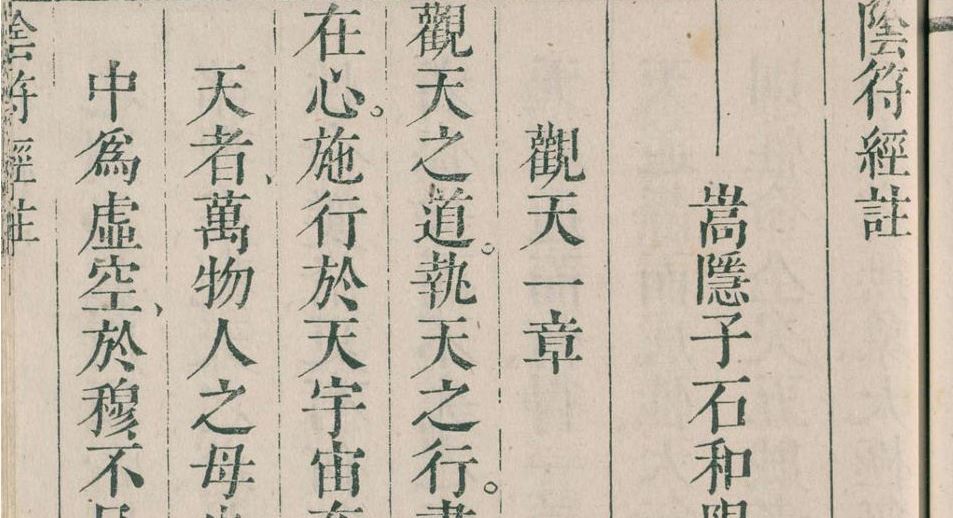 陰符經註
嵩隱子石和陽
觀天一章
觀天之道。執天之行。
在心。施行於天宇宙
天者、萬物人之母
中爲虛空、於穆不
陰符經註